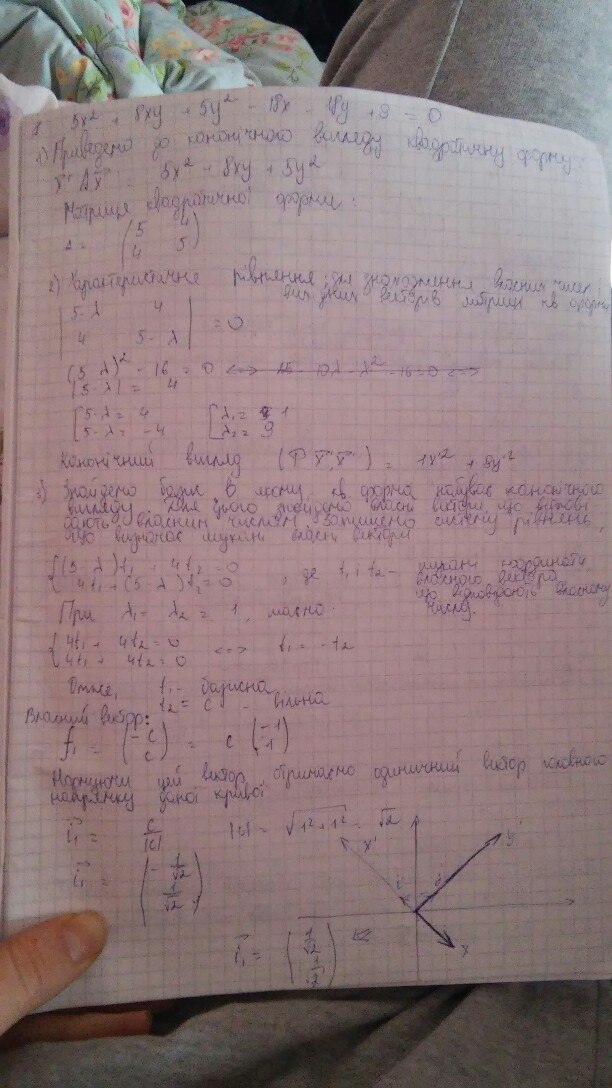 5x² + 8xy + 5y² - 18x - 18y + 9 = 0
1) Приведемо до канонічного вигляду квадратичну форму:
x⃗ᵀAx⃗ = 5x² + 8xy + 5y²
Матриця квадратичної форми:
(5 4
4 5)
2) Характеристичне рівняння для знаходження власних чисел
векторів матриці кв форми
|5-λ 4
4 5-λ| = 0
(5-λ)² - 16 = 0 <=>
|5-λ| = 4
[5-λ = 4 [λ₁ = 1
5-λ = -4 λ₂ = 9
Канонічний вигляд = 1x'² + 9y'²
3) Знайдемо базис в якому кв форма набуває канонічного
вигляду. Для цього знайдемо власні вектори, що відпові
дають власним числам. Запишемо систему рівнянь,
що визначає шукані власні вектори
{(5-λ)t₁ + 4t₂ = 0
4t₁ + (5-λ)t₂ = 0, де t₁ i t₂ - шукані координати
власного вектора,
що відповідають власному
числу.
При λ₁ = λ₂ = 1, маємо:
{4t₁ + 4t₂ = 0
4t₁ + 4t₂ = 0 <=> t₁ = -t₂
Отже, t₁ - базисна
t₂ = c - вільна
Власний вектор:
f₁ = (-c
c) = c (-1
1)
Нормуючи цей вектор, отримаємо одиничний вектор головного
напрямку даної кривої
i⃗₁ = c/|c| |c| = √1²+1² = √2
i⃗₁ = (-1/√2
1/√2)
x' y'
x